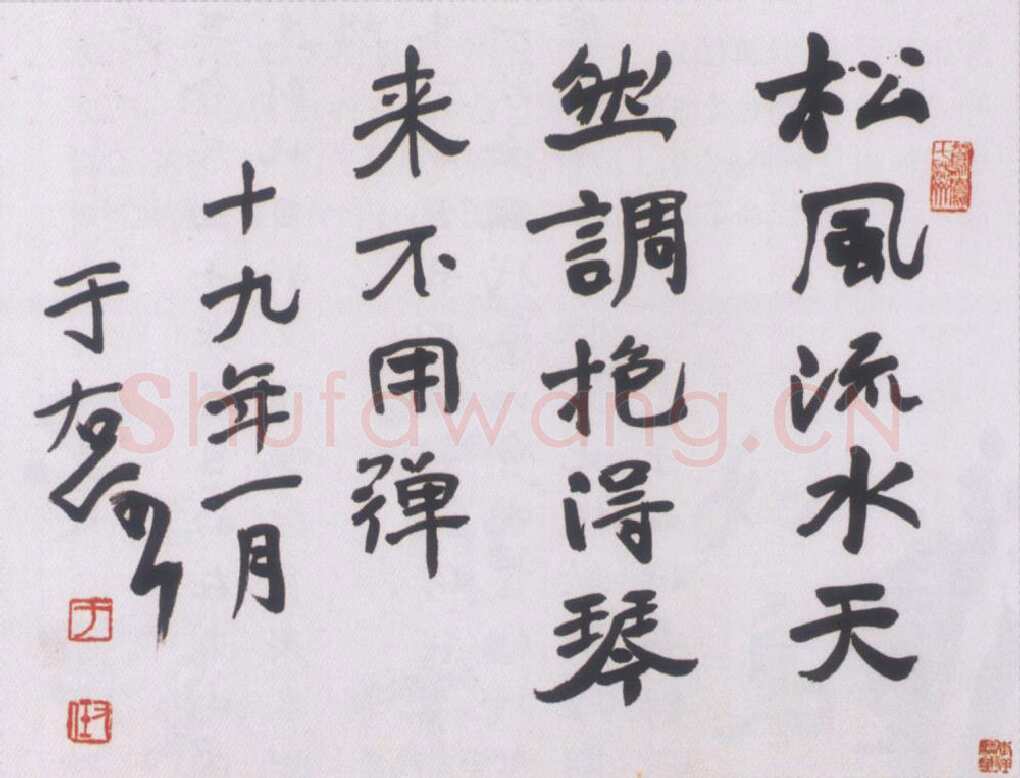 松風流水天
然調抱得琴
来不用弹
十九年一月
于右任
Shufawang.CN